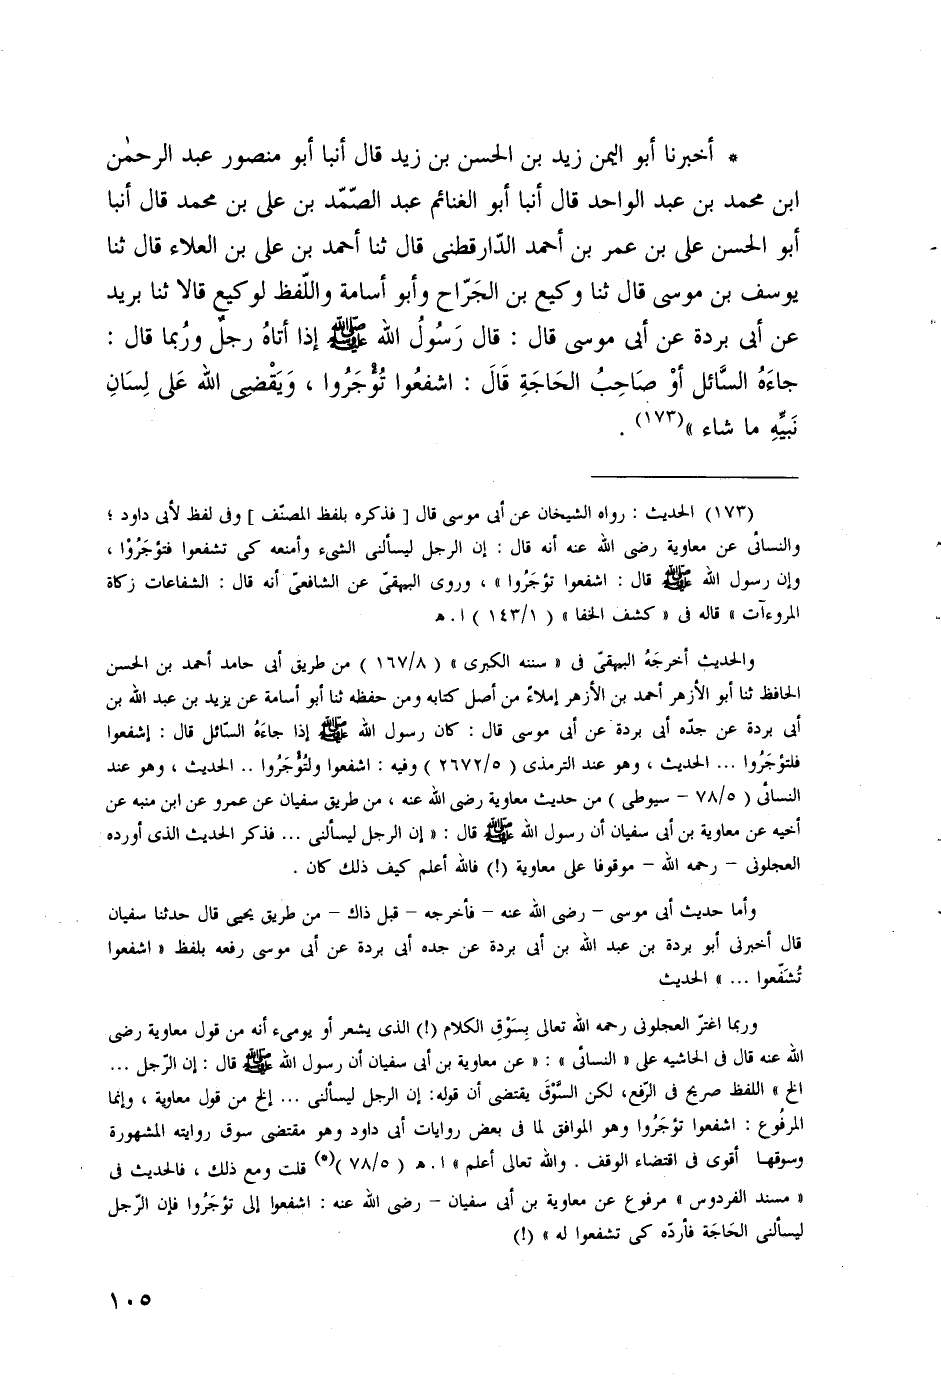 * أخبرنا أبو اليمن زيد بن الحسن بن زيد قال أنبا أبو منصور عبد الرحمٰن
ابن محمد بن عبد الواحد قال أنبا أبو الغنائم عبد الصّمّد بن على بن محمد قال أنبا
أبو الحسن على بن عمر بن أحمد الدّارقطنى قال ثنا أحمد بن على بن العلاء قال ثنا
يوسف بن موسى قال ثنا وكيع بن الجَرّاح وأبو أسامة واللّفظ لوكيع قالا ثنا بريد
عن أبى بردة عن أبى موسى قال : قال رَسُولُ الله ﷺ إذا أتاهُ رجلٌ ورُبما قال :
جاءَهُ السَّائل أوْ صَاحِبُ الحَاجَةِ قَالَ : اشفعُوا تُؤْجَرُوا ، وَيَقْضِى الله عَلى لِسَانِ
نَبيِّهِ ما شاء »(١٧٣) .
(١٧٣) الحديث : رواه الشيخان عن أبى موسى قال [ فذكره بلفظ المصنّف ] وفى لفظ لأبى داود ؛
والنسائى عن معاوية رضى الله عنه أنه قال : إن الرجل ليسألنى الشىء وأمنعه كى تشفعوا فتؤجَرُوْا ،
وإن رسول الله ﷺ قال : اشفعوا تؤجَرُوا » ، وروى البيهقىّ عن الشافعىّ أنه قال : الشفاعات زكاة
المروءآت » قاله فى « كشف الخفا » ( ١٤٣/١ ) ا. هـ
والحديث أخرجَهُ البيهقىّ فى « سننه الكبرى » ( ١٦٧/٨ ) من طريق أبى حامد أحمد بن الحسن
الحافظ ثنا أبو الأزهر أحمد بن الأزهر إملاءً من أصل كتابه ومن حفظه ثنا أبو أسامة عن يزيد بن عبد الله بن
أبى بردة عن جدّه أبى بردة عن أبى موسى قال : كان رسول الله ﷺ إذا جاءَهُ السّائل قال : إشفعوا
فلتؤجَرُوا ... الحديث ، وهو عند الترمذى ( ٢٦٧٢/٥ ) وفيه : اشفعوا ولتُؤْجَرُوا .. الحديث ، وهو عند
النسائى ( ٧٨/٥ – سيوطى ) من حديث معاوية رضى الله عنه ، من طريق سفيان عن عمرو عن ابن منبه عن
أخيه عن معاوية بن أبى سفيان أن رسول الله ﷺ قال : « إن الرجل ليسألنى ... فذكر الحديث الذى أورده
العجلونى – رحمه الله – موقوفا على معاوية (!) فالله أعلم كيف ذلك كان .
وأما حديث أبى موسى – رضى الله عنه – فأخرجه – قبل ذاك – من طريق يحيى قال حدثنا سفيان
قال أخبرنى أبو بردة بن عبد الله بن أبى بردة عن جده أبى بردة عن أبى موسى رفعه بلفظ « اشفعوا
تُشفّعوا ... » الحديث
وربما اغترّ العجلونى رحمه الله تعالى بِسَوْقِ الكلام (!) الذى يشعر أو يومىء أنه من قول معاوية رضى
الله عنه قال فى الحاشيه على « النسائى » : « عن معاوية بن أبى سفيان أن رسول الله ﷺ قال : إن الرّجل ...
الخ » اللفظ صريح فى الرّفع، لكن السَّوْقَ يقتضى أن قوله: إن الرجل ليسألنى ... إلخ من قول معاوية ، وإنما
المرفُوع : اشفعوا تؤجَرُوا وهو الموافق لما فى بعض روايات أبى داود وهو مقتضى سوق روايته المشهورة
وسوقها أقوى فى اقتضاء الوقف . والله تعالى أعلم » ا. هـ ( ٧٨/٥ )(*) قلت ومع ذلك ، فالحديث فى
« مسند الفردوس » مرفوع عن معاوية بن أبى سفيان – رضى الله عنه : اشفعوا إلى تؤجَرُوا فإن الرّجل
ليسألنى الحَاجَة فأردّه كى تشفعوا له » (!)
١٠٥